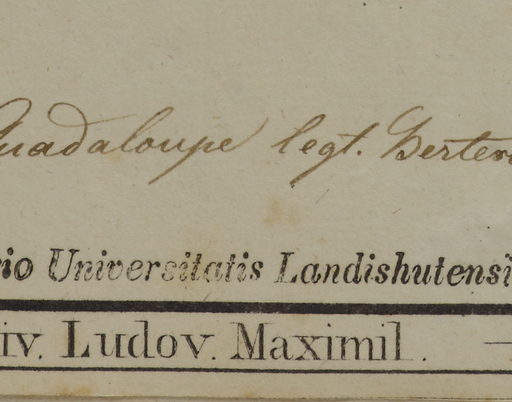 Guadaloupe legt. Berter
rio Universitatis Landishutensi
iv. Ludov. Maximil. —